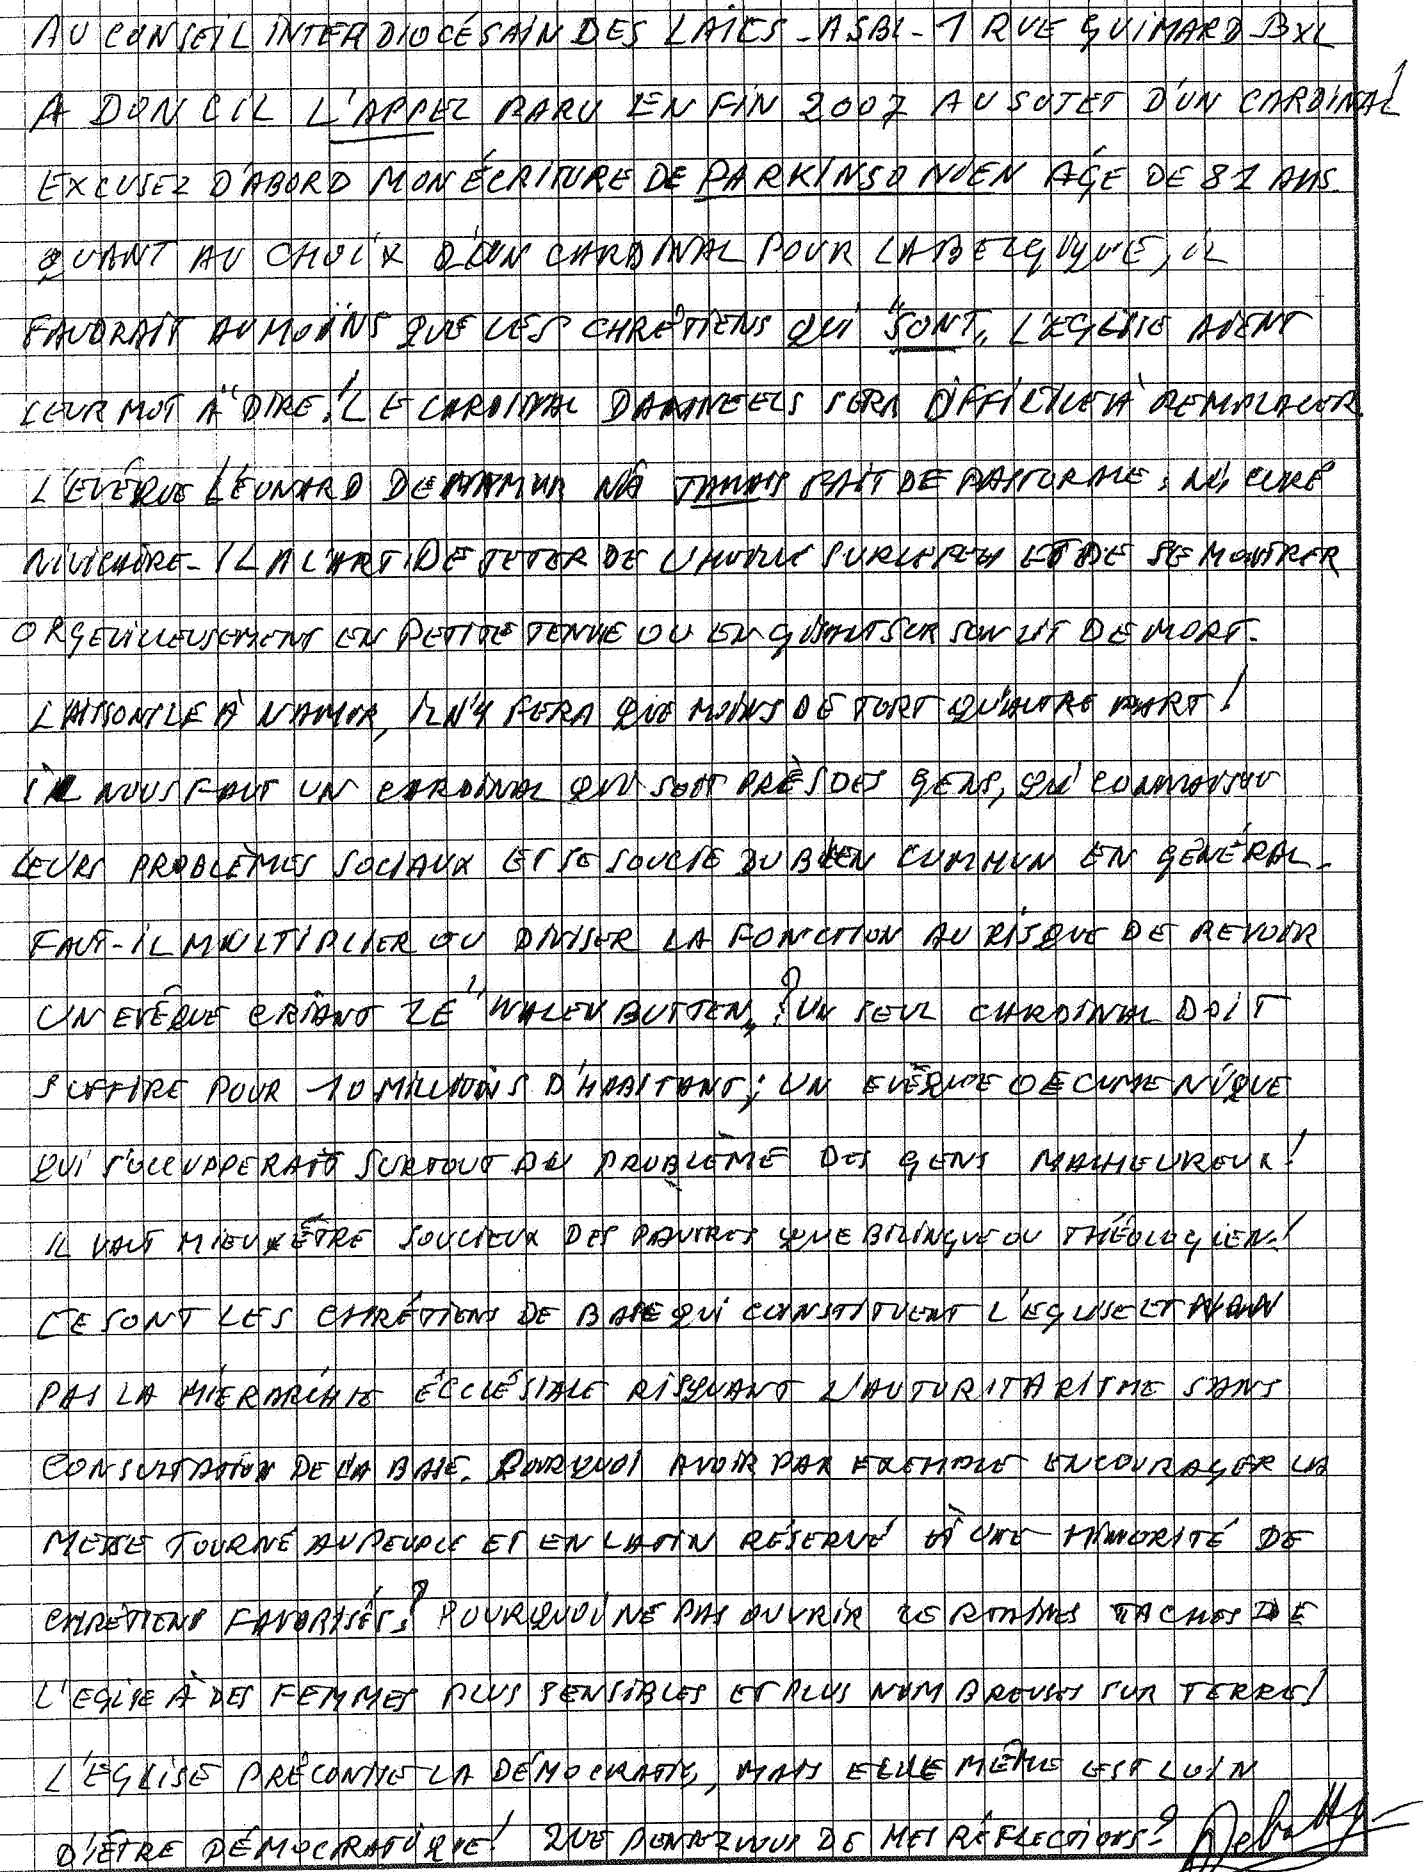 AU CONSEIL INTERDIOCÉSAIN DES LAÏCS - ASBL - 1 RUE GUIMARD BXL
A DON CIL L'APPEL PARU EN FIN 2007 AU SUJET D'UN CARDINAL!
EXCUSEZ D'ABORD MON ÉCRITURE DE PARKINSONIEN ÂGÉ DE 81 ANS.
QUANT AU CHOIX D'UN CARDINAL POUR LA BELGIQUE, IL
FAUDRAIT AU MOINS QUE LES CHRÉTIENS QUI "SONT" L'EGLISE AIENT
LEUR MOT À DIRE! LE CARDINAL DANNEELS SERA DIFFICILE À REMPLACER.
L'EVÊQUE LÉONARD DE NAMUR N'A JAMAIS FAIT DE PASTORALE: NI CURÉ
NI VICAIRE - IL A L'ART DE JETER DE L'HUILE SUR LE FEU ET DE SE MONTRER
ORGEUILLEUSEMENT EN PETITE TENUE OU EN GISANT SUR SON LIT DE MORT.
LAISSONS LE À NAMUR, IL N'Y FERA QUE MOINS DE TORT QU'AUTRE PART!
IL NOUS FAUT UN CARDINAL QUI SOIT PRÈS DES GENS, QUI CONNAISSE
LEURS PROBLÈMES SOCIAUX ET SE SOUCIE DU BIEN COMMUN EN GÉNÉRAL.
FAUT-IL MULTIPLIER OU DIVISER LA FONCTION AU RISQUE DE REVOIR
UN EVÊQUE CRIANT LE "WALEN BUITEN"? UN SEUL CARDINAL DOIT
SUFFIRE POUR 10 MILLIONS D'HABITANT; UN EVÊQUE OECUMENIQUE
QUI S'OCCUPPERAIT SURTOUT DU PROBLÈME DES GENS MALHEUREUX!
IL VAUT MIEUX ÊTRE SOUCIEUX DES PAUVRES QUE BILINGUE OU THÉOLOGIEN!
CE SONT LES CHRÉTIENS DE BASE QUI CONSTITUENT L'EGLISE ET NON
PAS LA HIERARCHIE ÉCCLÉSIALE RISQUANT L'AUTORITARISME SANS
CONSULTATION DE LA BASE. POURQUOI AVOIR PAR EXEMPLE ENCOURAGER LA
MESSE TOURNÉ AU PEUPLE ET EN LATIN RÉSERVÉ À UNE MINORITÉ DE
CHRÉTIENS FAVORISÉS? POURQUOI NE PAS OUVRIR CERTAINES TACHES DE
L'EGLISE À DES FEMMES PLUS SENSIBLES ET PLUS NOMBREUSES SUR TERRE!
L'ÉGLISE PRÉCONISE LA DÉMOCRATIE, MAIS ELLE MÊME EST LOIN
D'ÊTRE DÉMOCRATIQUE! QUE PENSEZ VOUS DE MES RÉFLECTIONS?